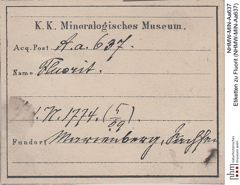 K. K. Mineralogisches Museum.
Acq. Post A.a.637.
Name Fluorit.
N. 1774. (5/89)
Fundort Marienberg, Sachsen
NHMW-MIN-Aa637
Etiketten zu Fluorit (NHMW-MIN-Aa637)
nhm